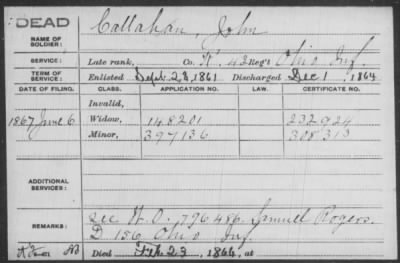 DEAD
Callahan, John
NAME OF SOLDIER:
SERVICE: Late rank, Co. K, 42 Reg't Ohio Inf.
TERM OF SERVICE: Enlisted Sept. 28, 1861 Discharged Dec 1, 1864
DATE OF FILING. CLASS. APPLICATION NO. LAW. CERTIFICATE NO.
Invalid,
1867 June 6 Widow, 148201 232924
Minor, 397136 308313
ADDITIONAL SERVICES:
REMARKS: See W.O. 796486 Samuel Rogers.
D 156 Ohio Inf.
Died Feb 23, 1866, at